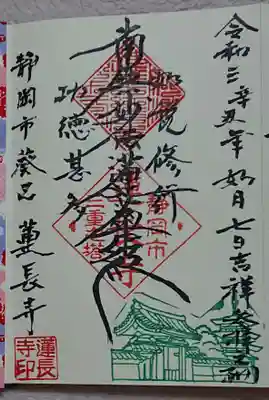 令和三辛丑年 如月 七日 吉祥
如説修行
南無妙法蓮華経
功徳甚多
静岡市葵区 蓮長寺
静岡市
三重之塔
蓮長
寺印